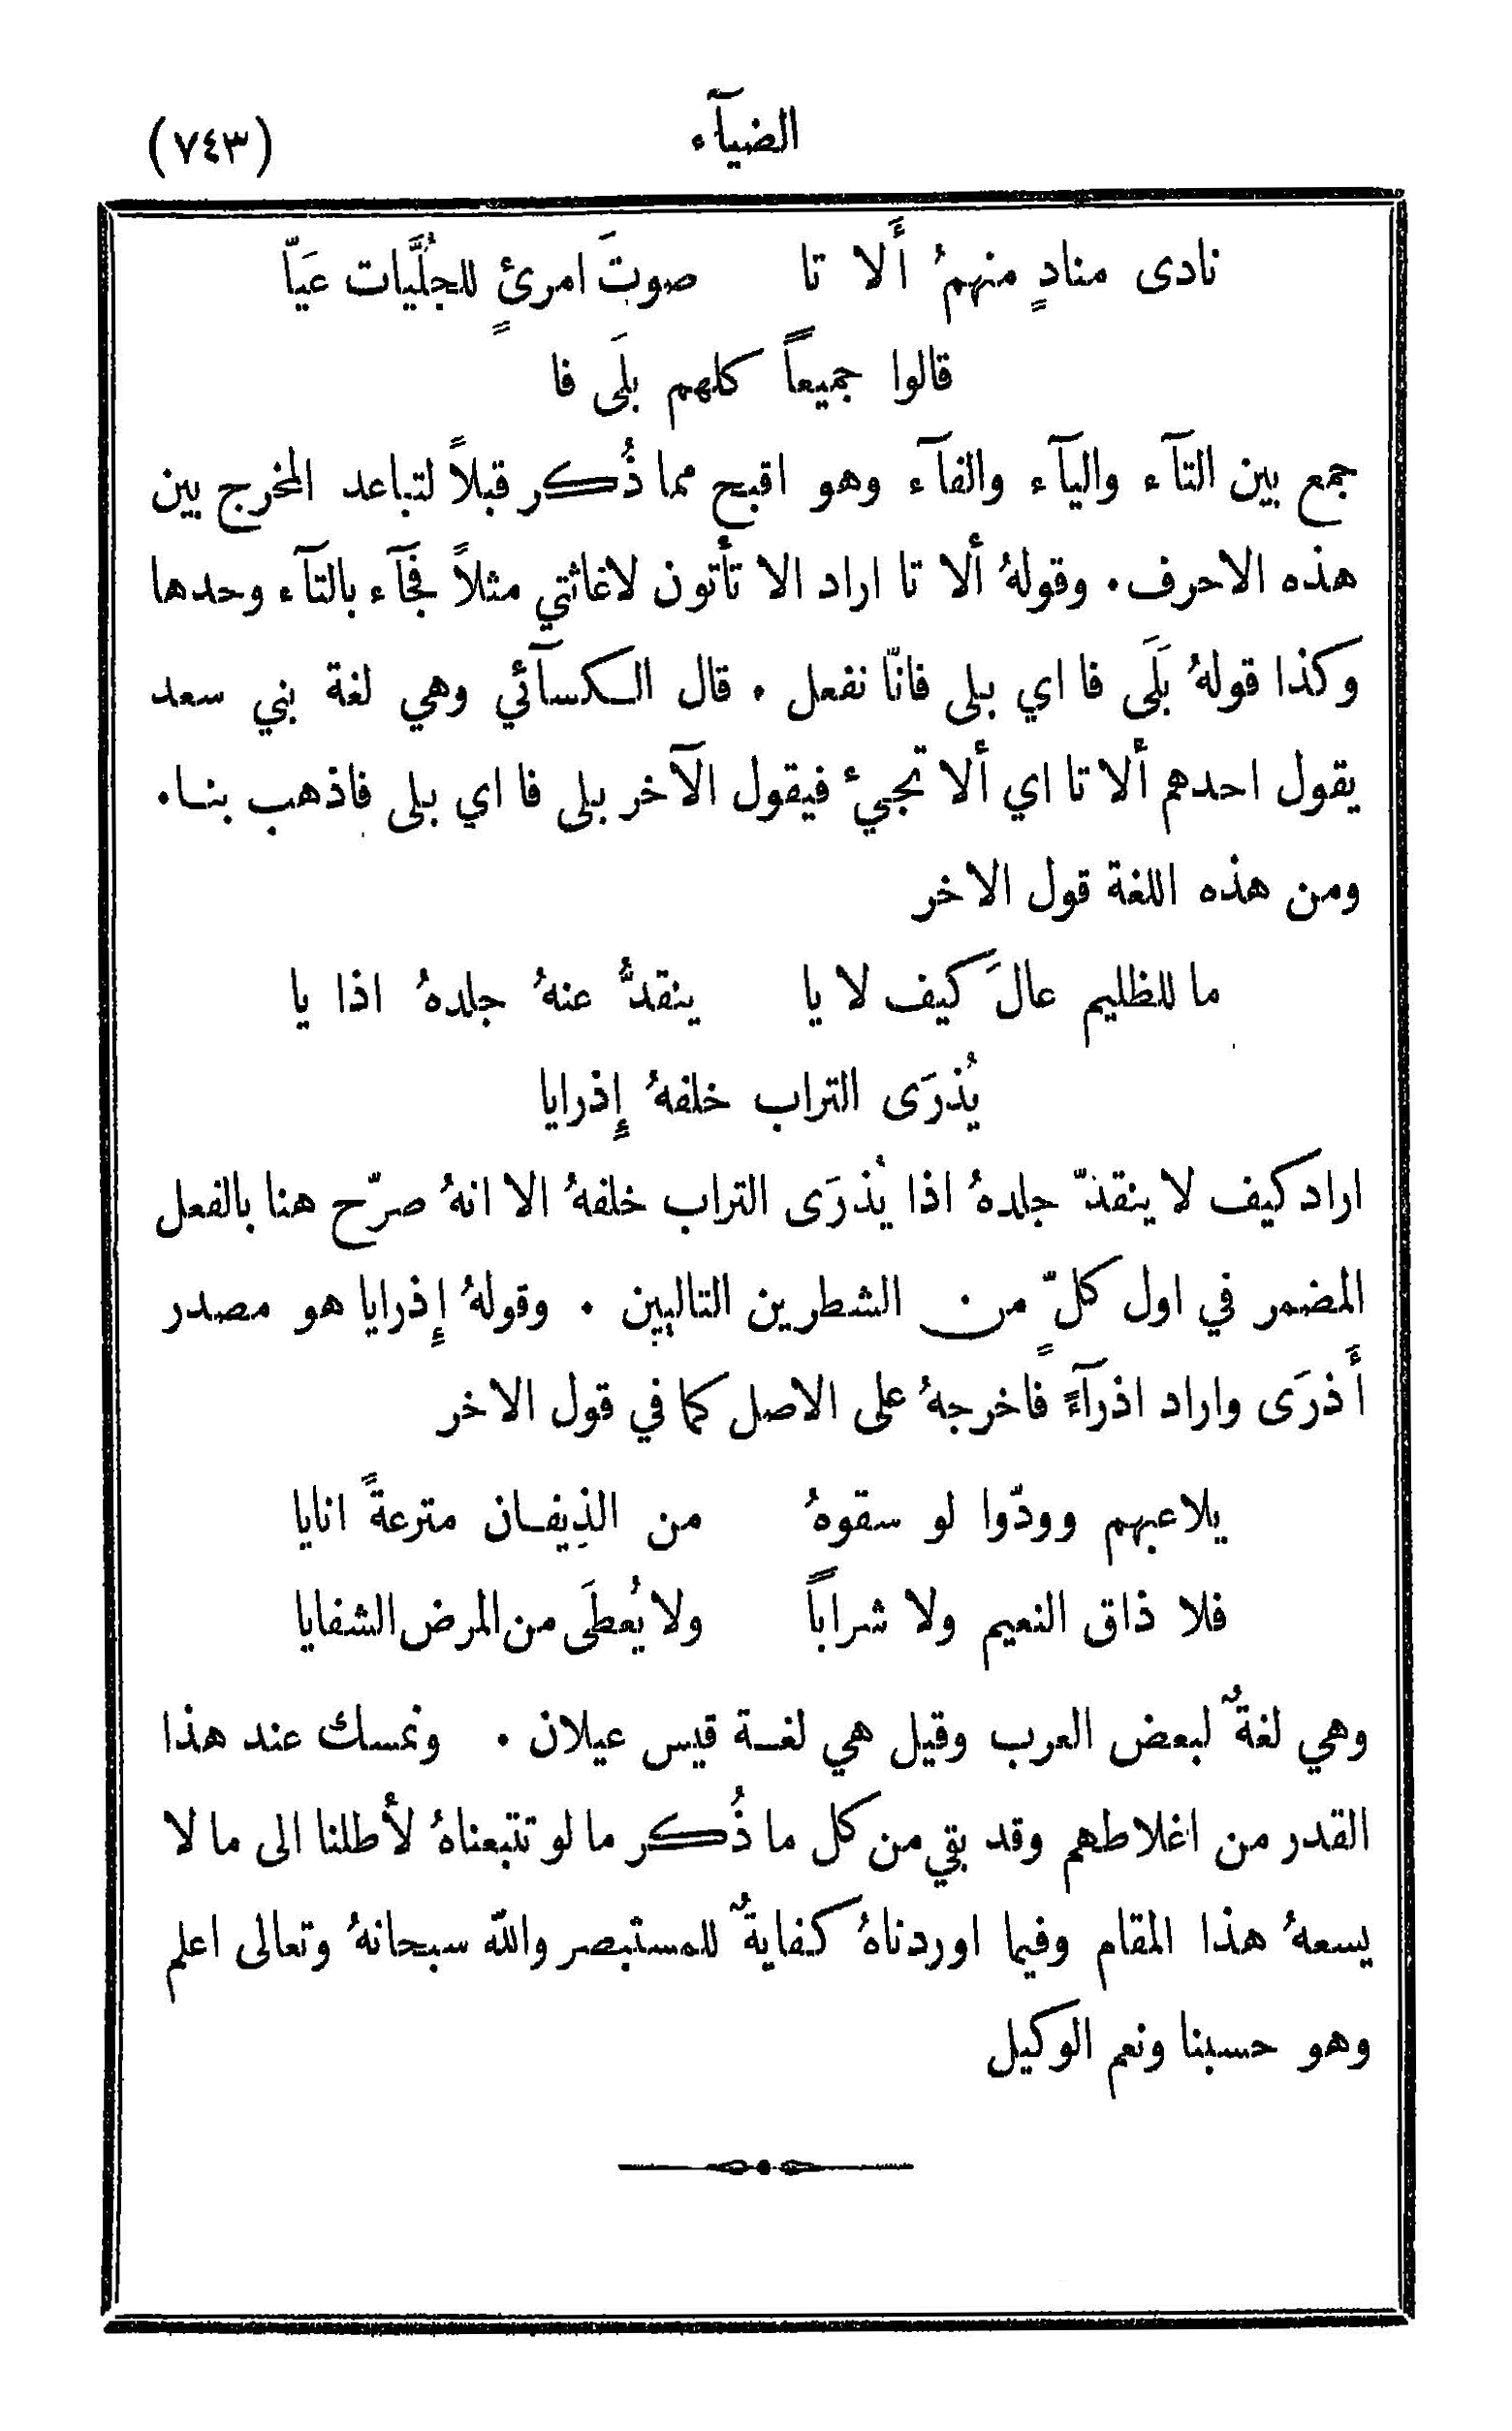 الضيآء
(٧٤٣)
نادى منادٍ منهمُ أَلا تا صوتَ امرئٍ للجُلَّيات عَيّا
قالوا جميعاً كلهم بلَى فا
جمع بين التآء واليآء والفآء وهو اقبح مما ذُكر قبلاً لتباعد المخرج بين
هذه الاحرف. وقولهُ ألا تا اراد الا تأتون لاغاثتي مثلاً فجآء بالتآء وحدها
وكذا قولهُ بَلَى فا اي بلى فانّا نفعل . قال الكسآئي وهي لغة بني سعد
يقول احدهم ألا تا اي ألا تجيء فيقول الآخر بلى فا اي بلى فاذهب بنا.
ومن هذه اللغة قول الاخر
ما للظليم عالَ كيف لا يا ينقدُّ عنهُ جلدهُ اذا يا
يُذرَى التراب خلفهُ إِذرايا
اراد كيف لا ينقذّ جلدهُ اذا يُذرَى التراب خلفهُ الا انهُ صرّح هنا بالفعل
المضمر في اول كلٍّ من الشطرين التاليين . وقولهُ إِذرايا هو مصدر
أَذرَى واراد اذرآءً فاخرجهُ على الاصل كما في قول الاخر
يلاعبهم وودّوا لو سقوهُ من الذِيفان مترعةً انايا
فلا ذاق النعيم ولا شراباً ولا يُعطَى من المرض الشفايا
وهي لغةٌ لبعض العرب وقيل هي لغة قيس عيلان . ونمسك عند هذا
القدر من اغلاطهم وقد بقي من كل ما ذُكر ما لو تتبعناهُ لأطلنا الى ما لا
يسعهُ هذا المقام وفيما اوردناهُ كفايةٌ للمستبصر والله سبحانهُ وتعالى اعلم
وهو حسبنا ونعم الوكيل